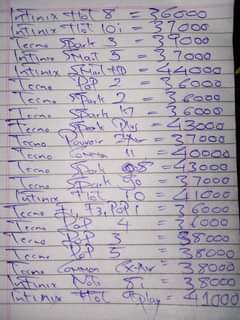 Infinix Hot 8 = 36000
Infinix Hot 10i = 37000
Tecno Spark 3 = 37000
Infinix Smart 5 = 37000
Infinix Smart HD = 44000
Tecno POP 2 = 36000
Tecno Spark 2 = 36000
Tecno Spark = 36000
Tecno Spark Plus = 43000
Tecno Pouvoir = 37000
Tecno Camon 11 = 40000
Tecno Spark = 43000
Tecno Spark = 37000
Infinix Hot 10 = 41000
Tecno = 36000
Tecno POP 4 =
Tecno POP 3 = 38000
Tecno POP 5 = 38000
Tecno Common = 38000
Infinix Note 8i = 38000
Infinix Hot 9play = 41000